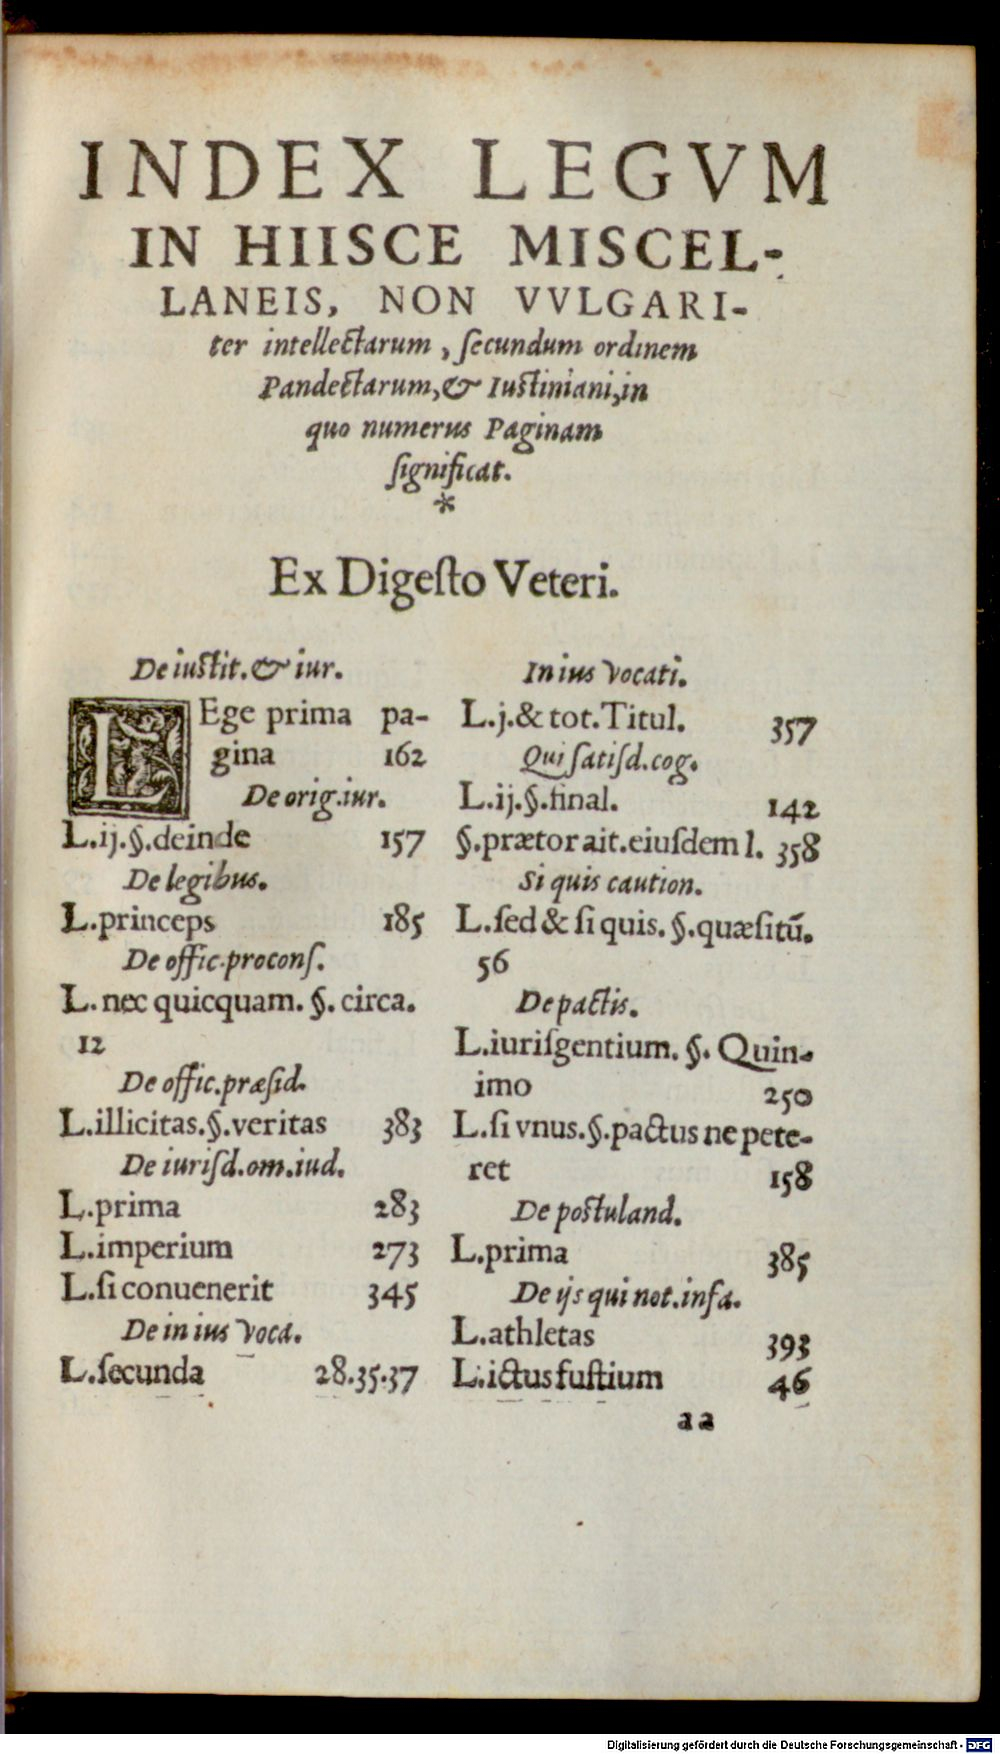 INDEX LEGVM
IN HIISCE MISCEL-
LANEIS, NON VVLGARI-
ter intellectarum, ſecundum ordinem
Pandectarum,& Iustiniani,in
quo numerus Paginam
ſignificat.
*
Ex Digeſto Veteri.
De iustit.& iur.
LEge prima pa-
gina 162
De orig.iur.
L.ij.§.deinde 157
De legibus.
L.princeps 185
De offic.proconſ.
L.nec quicquam. §. circa.
12
De offic.præſid.
L.illicitas.§.veritas 383
De iuriſd.om.iud.
L.prima 283
L.imperium 273
L.ſi conuenerit 345
De in ius voca.
L.ſecunda 28.35.37
In ius vocati.
L.j.& tot.Titul. 357
Qui ſatiſd.cog.
L.ij.§.final. 142
§.prætor ait.eiuſdem l. 358
Si quis caution.
L.ſed & ſi quis. §.quæſitū.
56
De pactis.
L.iuriſgentium. §. Quin-
imo 250
L.ſi vnus.§.pactus ne pete-
ret 158
De postuland.
L.prima 385
De ijs qui not.infa.
L.athletas 393
L.ictus fuſtium 46
aa
Digitalisierung gefördert durch die Deutsche Forschungsgemeinschaft - DFG